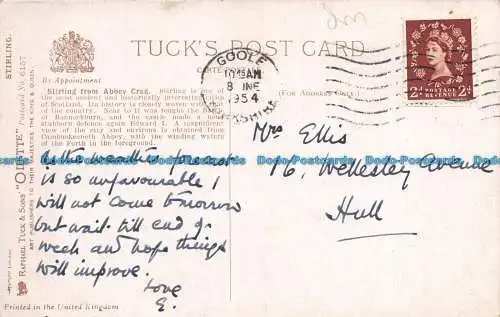 TUCK'S POST CARD
CARTE POSTALE
(FOR ADDRESS ONLY.)
STIRLING.
RAPHAEL TUCK & SONS' "OILETTE" Postcard No. 6157
ART PUBLISHERS TO THEIR MAJESTIES THE KING & QUEEN.
By Appointment
Stirling from Abbey Crag. Stirling is one of
the most ancient and historically interesting towns
of Scotland. Its history is closely woven with that
of the country. Near to it was fought the Battle
of Bannockburn, and the castle made a
defence against Edward I. A magnificent
view of the city and environs is obtained from
Cambuskenneth Abbey, with the winding waters
of the Forth in the foreground.
GOOLE
10:15AM
8 JNE
1954
YORKSHIRE
POSTAGE
REVENUE
2d 2d
As the weather forecast
is so unfavourable I
will not come tomorrow
but wait till end of
week and hope things
will improve.
Love
E.
Mrs Ellis
76, Wellesley Avenue
Hull
Printed in the United Kingdom
Bodo-Postcards